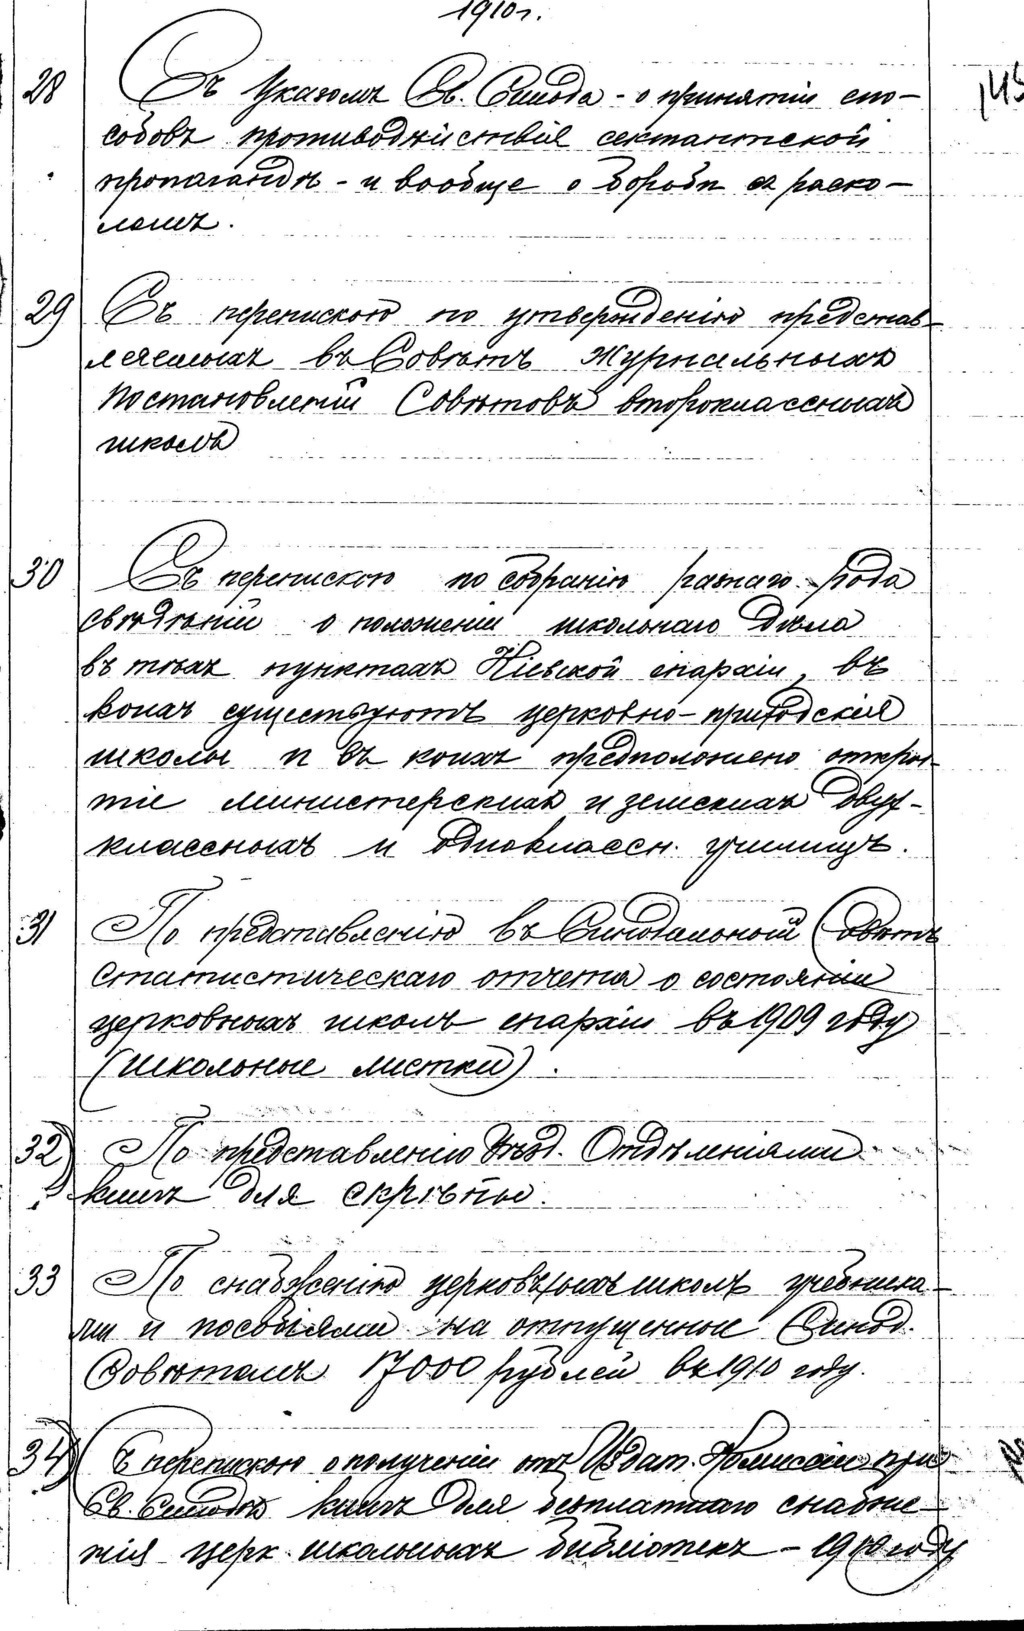 1910 г.
28 Съ Указомъ Св. Синода - о принятіи спо-
собовъ противодѣйствія сектантской
пропагандѣ - и вообще о борьбѣ съ раско-
ломъ.
29 Съ перепискою по утвержденію представ-
ляемыхъ въ Совѣтъ Журнальныхъ
Постановленій Совѣтовъ второклассныхъ
школъ
30 Съ перепискою по собранію разнаго рода
свѣдѣній о положеніи школьнаго дѣла
въ тѣхъ пунктахъ Кіевской епархіи, въ
коихъ существуютъ церковно-приходскія
школы и въ коихъ предположено откры-
тіе министерскихъ и земскихъ двух-
классныхъ и одноклассн. училищъ.
31 По представленію въ Синодальный Совѣтъ
статистическаго отчета о состояніи
церковныхъ школъ епархіи въ 1909 году
(школьные листки).
32) По представленію Уѣзд. Отдѣленіями
книгъ для скрѣпы.
33 По снабженію церковныхъ школъ учебника-
ми и пособіями на отпущенные Синод.
Совѣтомъ 17000 рублей въ 1910 году.
34) Съ перепискою о полученіи отъ Издат. Комиссіи при
Св. Синодѣ книгъ для безплатнаго снабже-
нія церк. школьныхъ библіотекъ - 1910 году